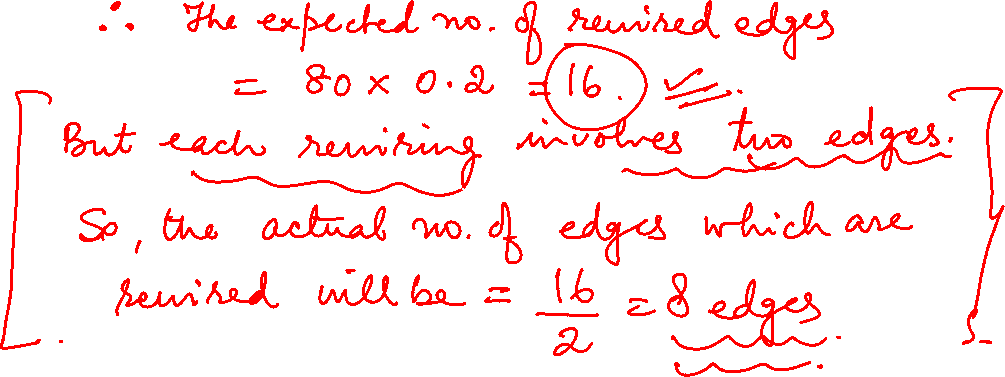 ∴ The expected no. of rewired edges
= 80 × 0.2 = 16.
But each rewiring involves two edges.
So, the actual no. of edges which are
rewired will be = 16/2 = 8 edges.